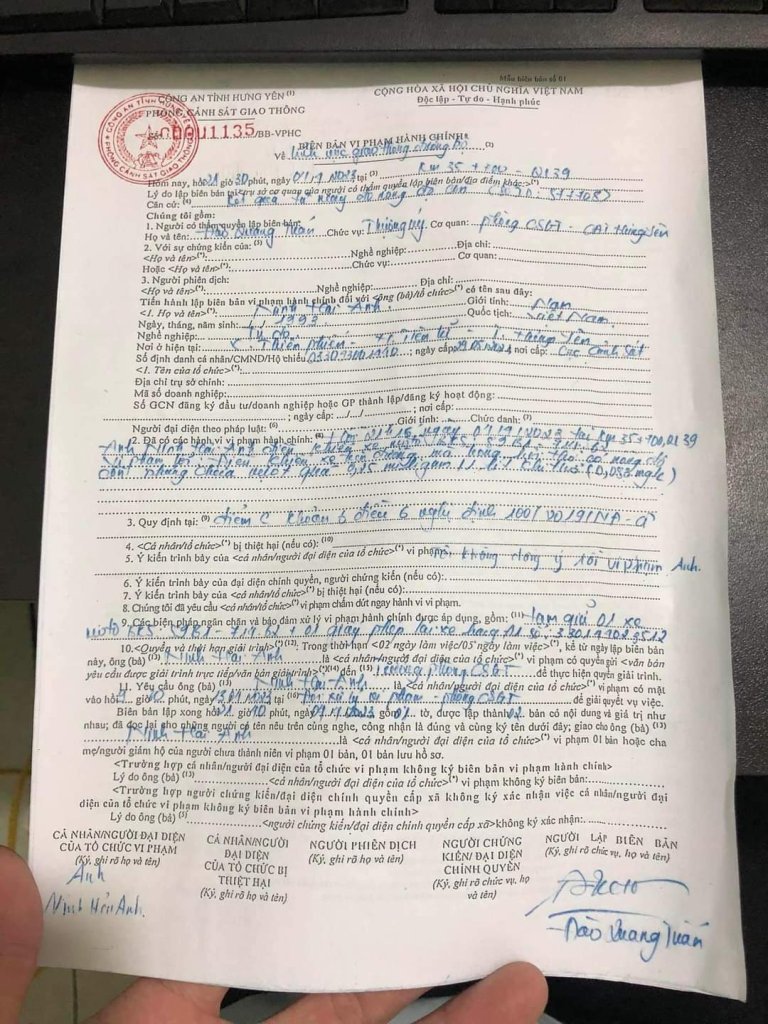 Mẫu biên bản số 01
CÔNG AN TỈNH HƯNG YÊN (1)
PHÒNG CẢNH SÁT GIAO THÔNG
CỘNG HÒA XÃ HỘI CHỦ NGHĨA VIỆT NAM
Độc lập - Tự do - Hạnh phúc
CÔNG AN TỈNH HƯNG YÊN
PHÒNG CẢNH SÁT GIAO THÔNG
Số: 0001135/BB-VPHC
BIÊN BẢN VI PHẠM HÀNH CHÍNH
Về lĩnh vực giao thông đường bộ (2)
Hôm nay, hồi 21 giờ 30 phút, ngày 07/1/2023 tại (3) Km 35 + 700 - QL39
Lý do lập biên bản tại <trụ sở cơ quan của người có thẩm quyền lập biên bản/địa điểm khác>(*):
Căn cứ: (4) Kết quả đo nồng độ cồn
Chúng tôi gồm:
1. Người có thẩm quyền lập biên bản:
Họ và tên: Đào Quang Tuấn Chức vụ: Thượng úy. Cơ quan: phòng CSGT - CAT Hưng Yên
2. Với sự chứng kiến của: (5)
<Họ và tên>(*): Nghề nghiệp: Địa chỉ:
Hoặc <Họ và tên>(*): Chức vụ: Cơ quan:
3. Người phiên dịch:
<Họ và tên>(*): Nghề nghiệp: Địa chỉ:
Tiến hành lập biên bản vi phạm hành chính đối với <ông (bà)/tổ chức>(*) có tên sau đây:
<1. Họ và tên>(*): Ninh Hải Anh Giới tính: Nam
Ngày, tháng, năm sinh: / / 1993 Quốc tịch: Việt Nam
Nghề nghiệp: Tự do
Nơi ở hiện tại: X Thiện Phiến - H Tiên Lữ - T. Hưng Yên
Số định danh cá nhân/CMND/Hộ chiếu: ; ngày cấp: ; nơi cấp: Cục Cảnh Sát
<1. Tên của tổ chức>(*):
Địa chỉ trụ sở chính:
Mã số doanh nghiệp:
Số GCN đăng ký đầu tư/doanh nghiệp hoặc GP thành lập/đăng ký hoạt động:
; ngày cấp: .../.../ ; nơi cấp:
Người đại diện theo pháp luật: (6) Giới tính: Chức danh: (7)
2. Đã có các hành vi vi phạm hành chính: (8) ngày 07/1/2023 tại Km 35+700, QL39
Anh Ninh Hải Anh điều khiển xe môtô BKS 59B1 - 719.62
vi phạm lỗi: Điều khiển xe trên đường mà trong hơi thở có nồng độ
cồn nhưng chưa vượt quá 0,25 miligam/1 lít khí thở (0,083 mg/L)
3. Quy định tại: (9) điểm c khoản 6 điều 6 nghị định 100/2019/NĐ-CP
4. <Cá nhân/tổ chức>(*) bị thiệt hại (nếu có): (10)
5. Ý kiến trình bày của <cá nhân/người đại diện của tổ chức>(*) vi phạm: không đồng ý lỗi vi phạm Anh.
6. Ý kiến trình bày của đại diện chính quyền, người chứng kiến (nếu có):
7. Ý kiến trình bày của <cá nhân/tổ chức>(*) bị thiệt hại (nếu có):
8. Chúng tôi đã yêu cầu <cá nhân/tổ chức>(*) vi phạm chấm dứt ngay hành vi vi phạm.
9. Các biện pháp ngăn chặn và bảo đảm xử lý vi phạm hành chính được áp dụng, gồm: (11) tạm giữ 01 xe
môtô BKS 59B1 - 719.62 + 01 giấy phép lái xe hạng A1 số:
10. <Quyền và thời hạn giải trình>(*)(12). Trong thời hạn <02 ngày làm việc/05 ngày làm việc>(*), kể từ ngày lập biên bản
này, ông (bà) (13) Ninh Hải Anh là <cá nhân/người đại diện của tổ chức>(*) vi phạm có quyền gửi <văn bản
yêu cầu được giải trình trực tiếp/văn bản giải trình>(*)(14) đến (15) Trưởng phòng CSGT để thực hiện quyền giải trình.
11. Yêu cầu ông (bà) (13) Ninh Hải Anh là <cá nhân/người đại diện của tổ chức>(*) vi phạm có mặt
vào hồi giờ phút, ngày tại (16) Đội xử lý vi phạm phòng CSGT để giải quyết vụ việc.
Biên bản lập xong hồi giờ phút, ngày 07/1/2023 gồm 01 tờ, được lập thành 02 bản có nội dung và giá trị như
nhau; đã đọc lại cho những người có tên nêu trên cùng nghe, công nhận là đúng và cùng ký tên dưới đây; giao cho ông (bà) (13)
Ninh Hải Anh là <cá nhân/người đại diện của tổ chức>(*) vi phạm 01 bản hoặc cha
mẹ/người giám hộ của người chưa thành niên vi phạm 01 bản, 01 bản lưu hồ sơ.
<Trường hợp cá nhân/người đại diện của tổ chức vi phạm không ký biên bản vi phạm hành chính>
Lý do ông (bà) (13) <cá nhân/người đại diện của tổ chức>(*) vi phạm không ký biên bản:
<Trường hợp người chứng kiến/đại diện chính quyền cấp xã không ký xác nhận việc cá nhân/người đại
diện của tổ chức vi phạm không ký biên bản vi phạm hành chính>
Lý do ông (bà) (5) <người chứng kiến/đại diện chính quyền cấp xã> không ký xác nhận:
CÁ NHÂN/NGƯỜI ĐẠI DIỆN
CỦA TỔ CHỨC VI PHẠM
(Ký, ghi rõ họ và tên)
Anh
Ninh Hải Anh.
CÁ NHÂN/NGƯỜI
ĐẠI DIỆN
CỦA TỔ CHỨC BỊ
THIỆT HẠI
(Ký, ghi rõ họ và tên)
NGƯỜI PHIÊN DỊCH
(Ký, ghi rõ họ và tên)
NGƯỜI CHỨNG
KIẾN/ ĐẠI DIỆN
CHÍNH QUYỀN
(Ký, ghi rõ chức vụ, họ
và tên)
NGƯỜI LẬP BIÊN BẢN
(Ký, ghi rõ chức vụ, họ và tên)
Đào Quang Tuấn